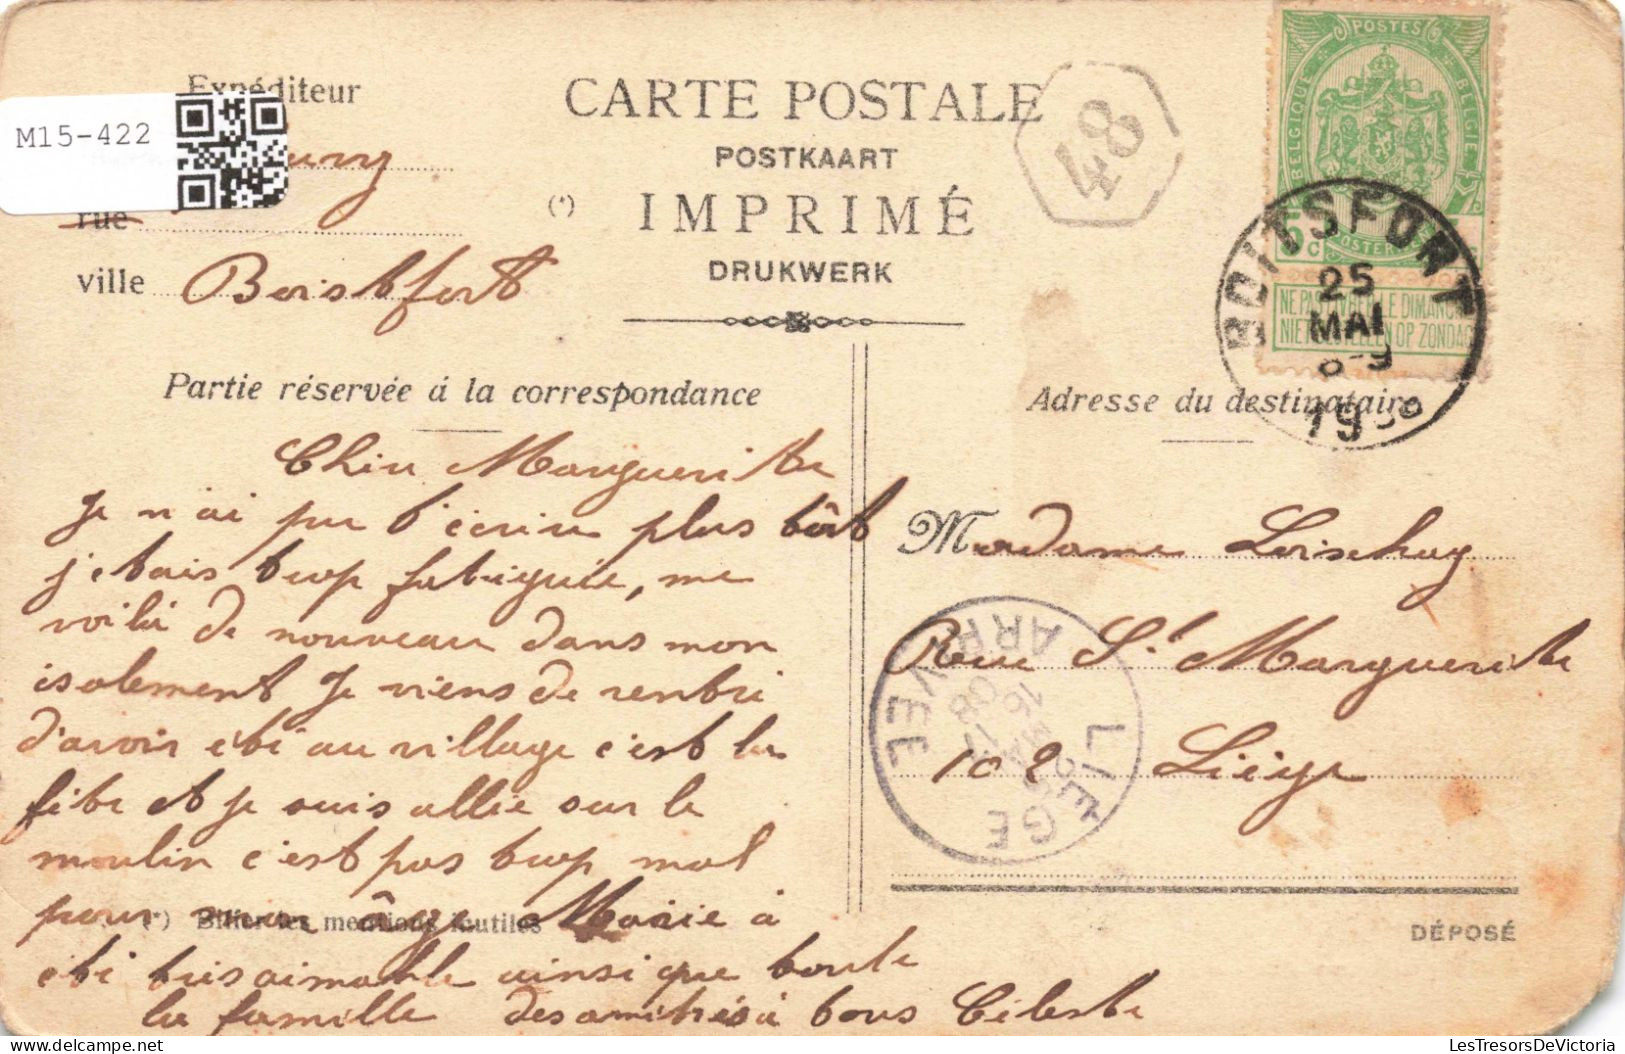 M15-422
Expéditeur
rue
ville Boistfort
CARTE POSTALE
POSTKAART
(*) IMPRIMÉ
DRUKWERK
48
POSTES
BELGIQUE BELGIE
5 c
NE PAS LIVRER LE DIMANCHE
NIET BESTELLEN OP ZONDAG
BOITSFORT
25
MAI
8-9
19
Partie réservée à la correspondance
Chère Marguerite
Je n'ai pu t'écrire plus tôt
j'étais trop fatiguée, me
voilà de nouveau dans mon
isolement Je viens de rentré
d'avoir été au village c'est la
fête et je suis allée sur le
moulin c'est pas trop mal
pour mon âge Marie à
été très aimable ainsi que toute
la famille des amitiés à tous Céleste
(*) Biffer les mentions inutiles
Adresse du destinataire
Madame Loischay
Rue St Marguerite
102 Liége
LIÈGE
ARRIVÉE
DÉPOSÉ
LesTresorsDeVictoria
https://www.delcampe.net